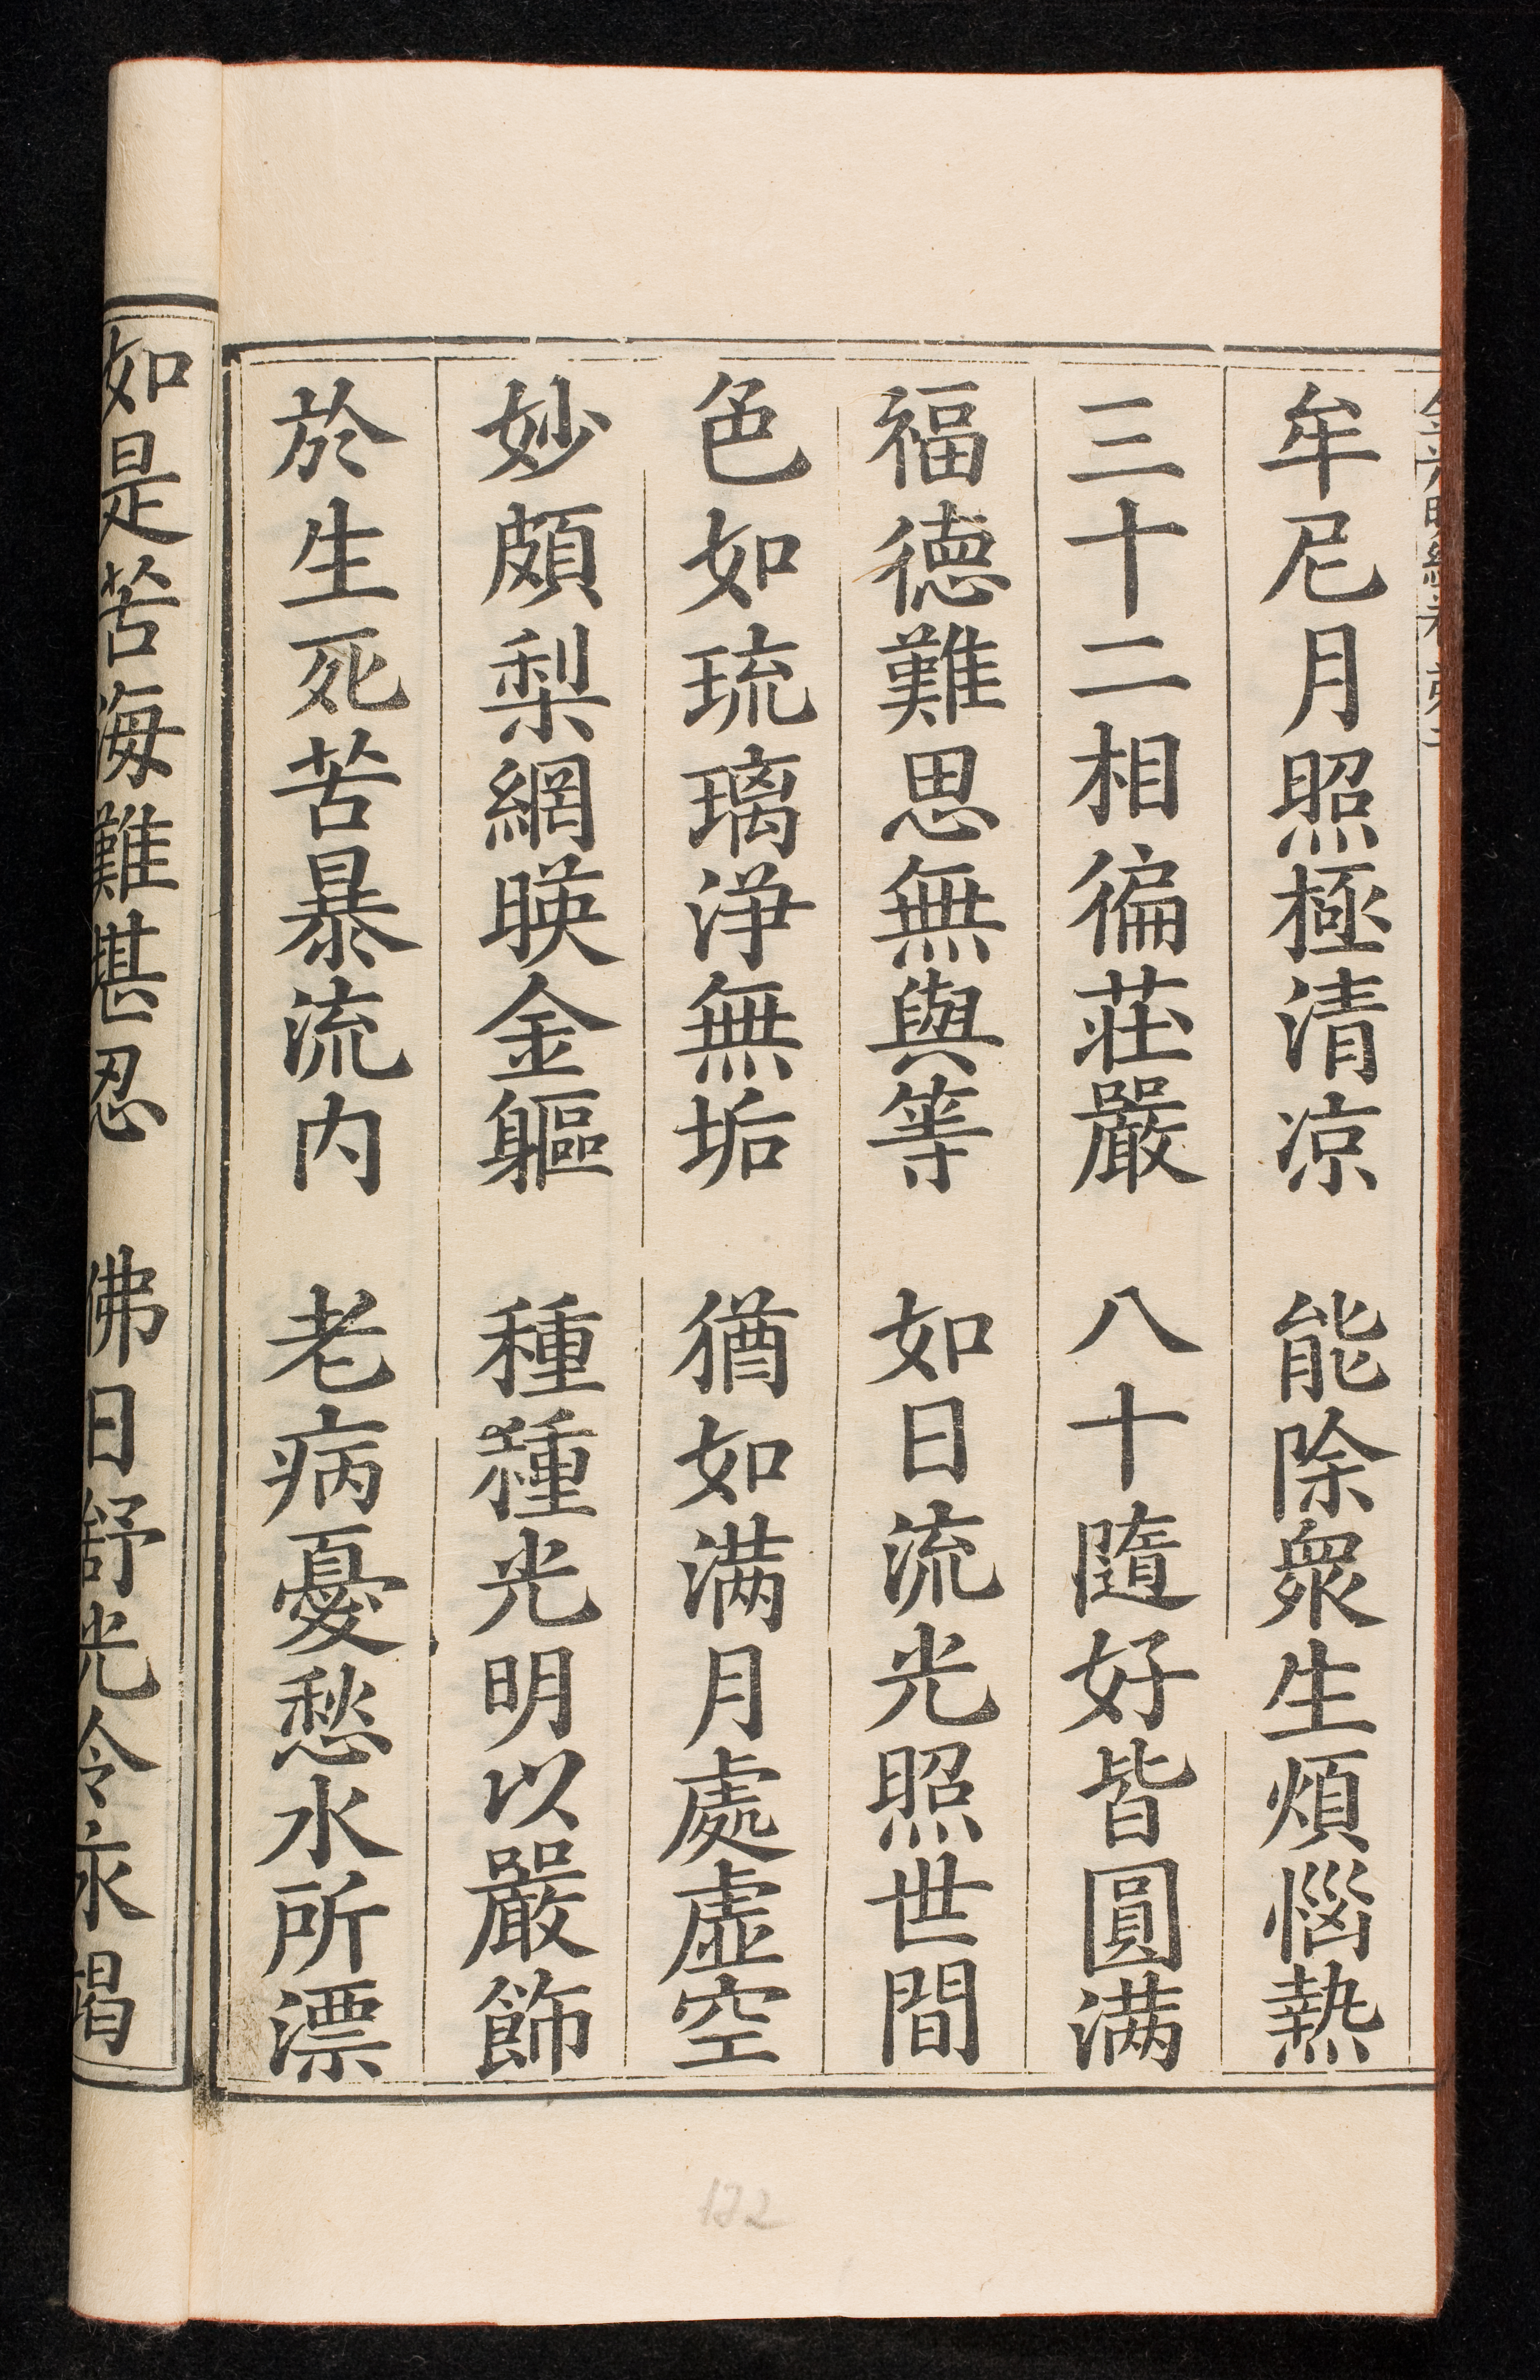 牟尼月照極清凉　能除衆生煩惱熱
三十二相徧莊嚴　八十隨好皆圓满
福德難思無與等　如日流光照世間
色如琉璃淨無垢　猶如满月處虛空
妙頗梨網暎金軀　種種光明以嚴飾
於生死苦暴流内　老病憂愁水所漂
如是苦海難堪忍　佛日舒光令永竭
132